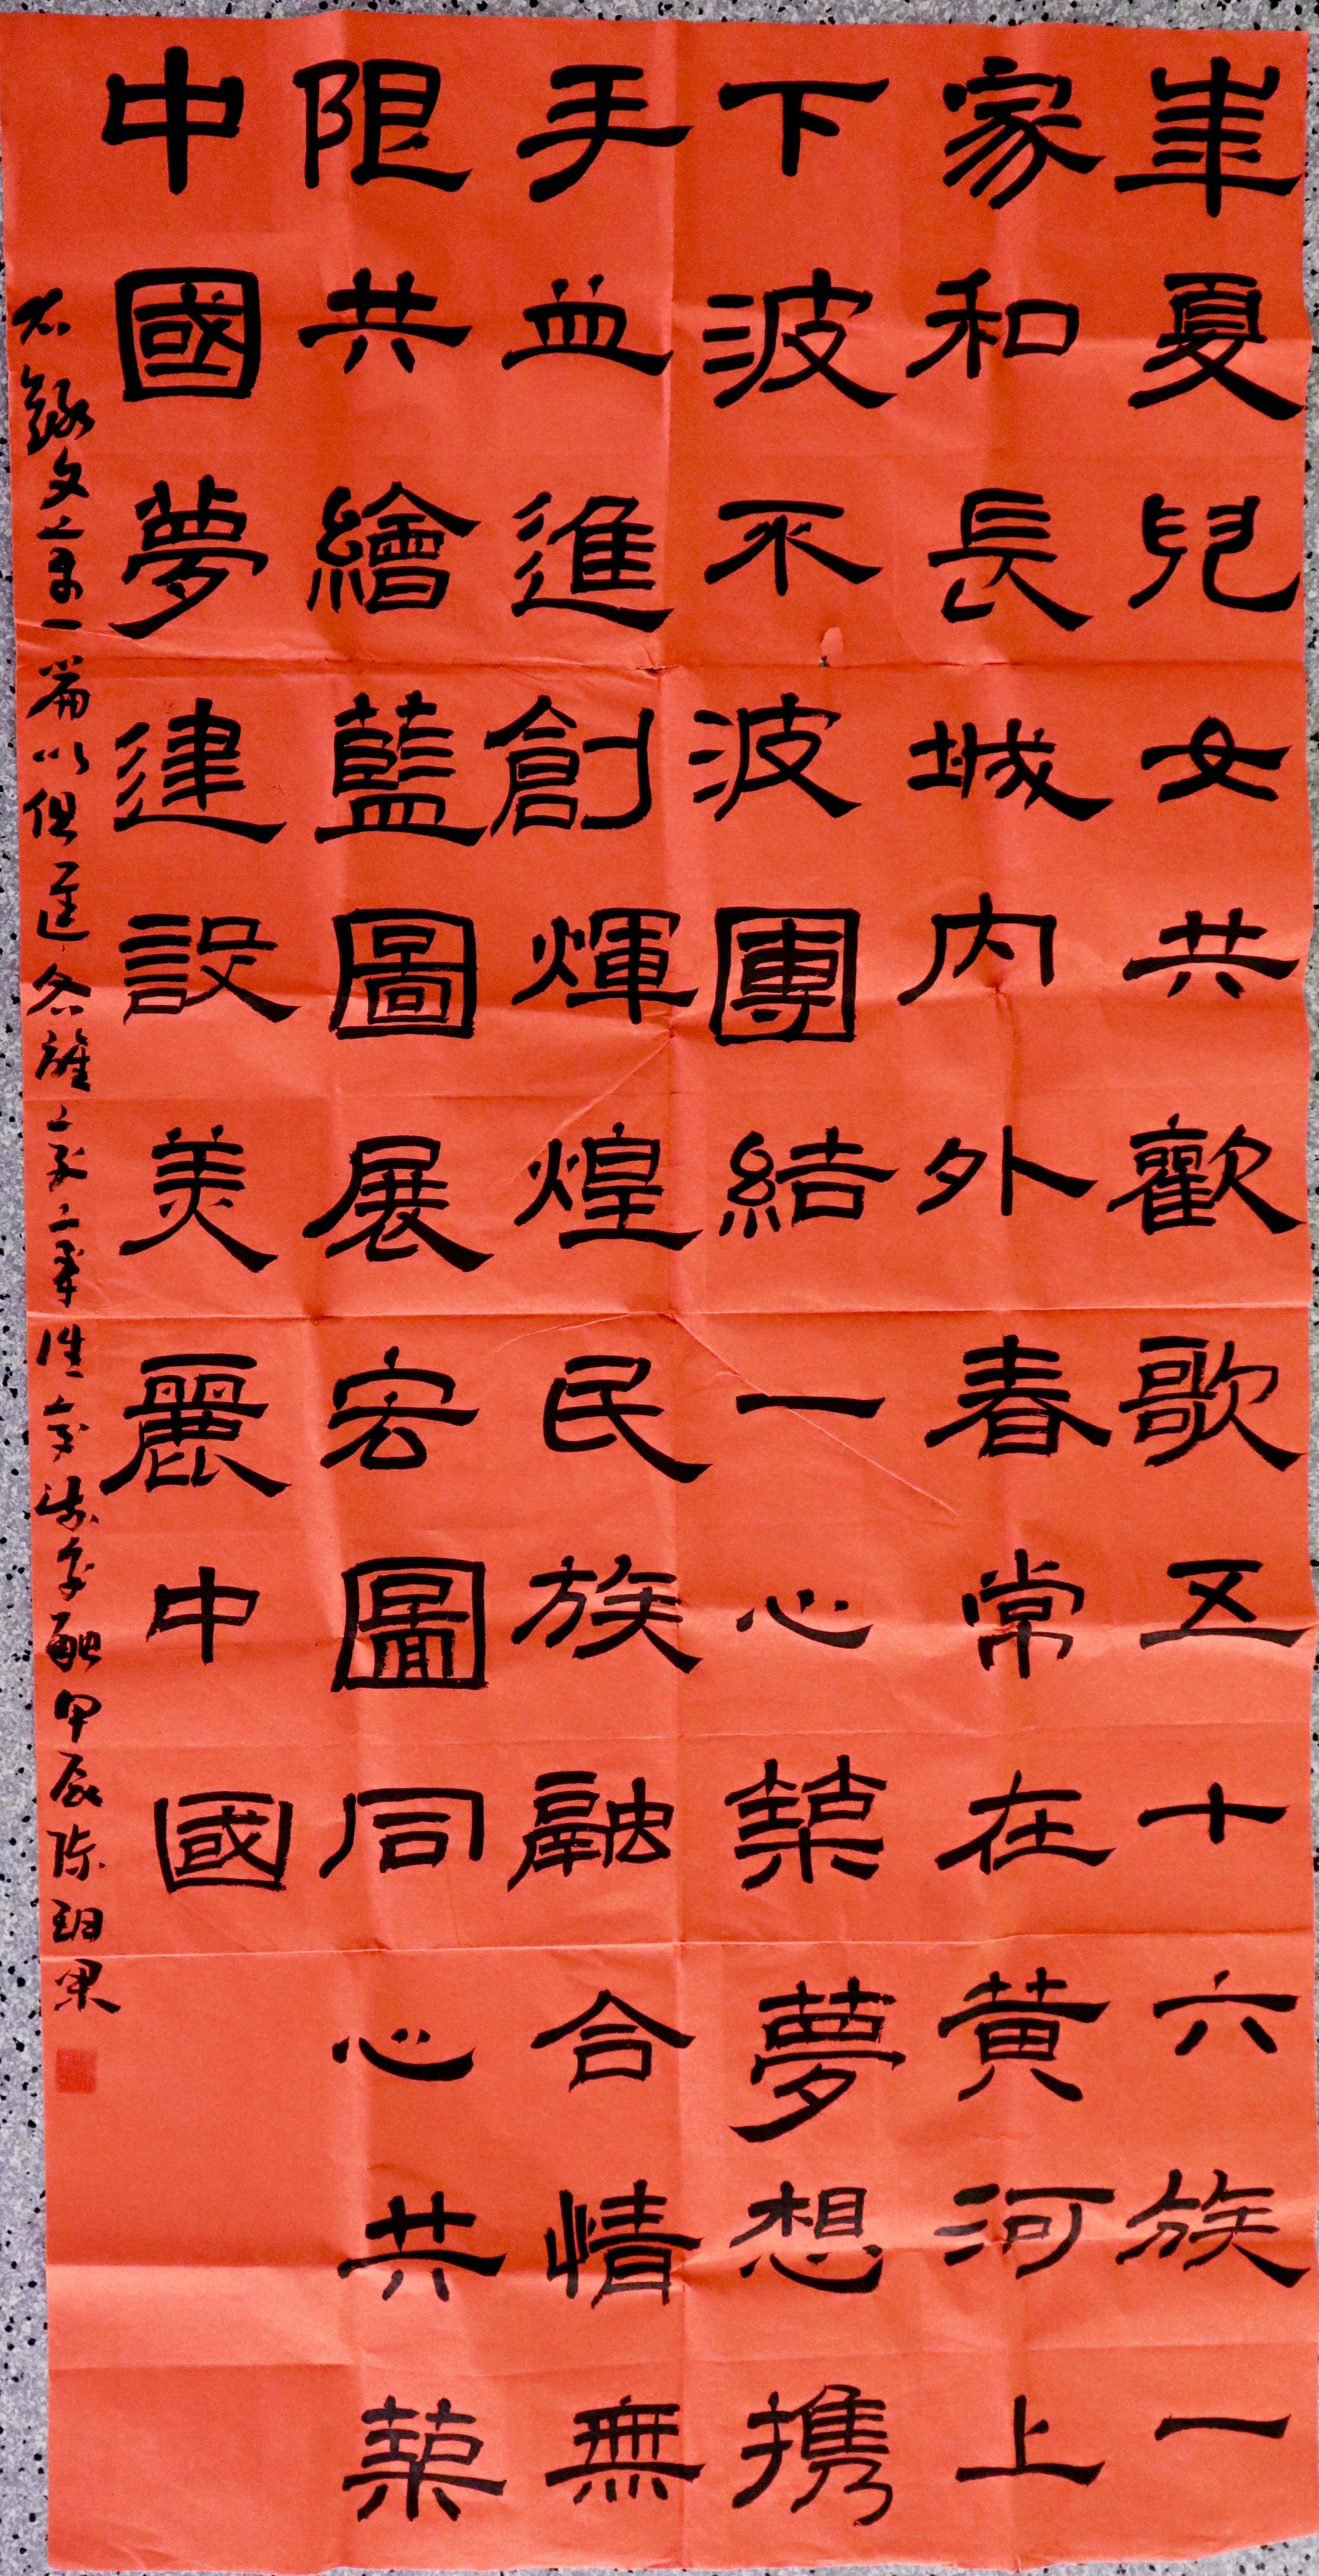 華夏兒女共歡歌五十六族一
家和長城内外春常在黄河上
下波不波團結一心築夢想携
手並進創煇煌民族融合情無
限共繪藍圖展宏圖同心共築
中國夢建設美麗中國
右錄文章一篇以促進各族融甲辰陳